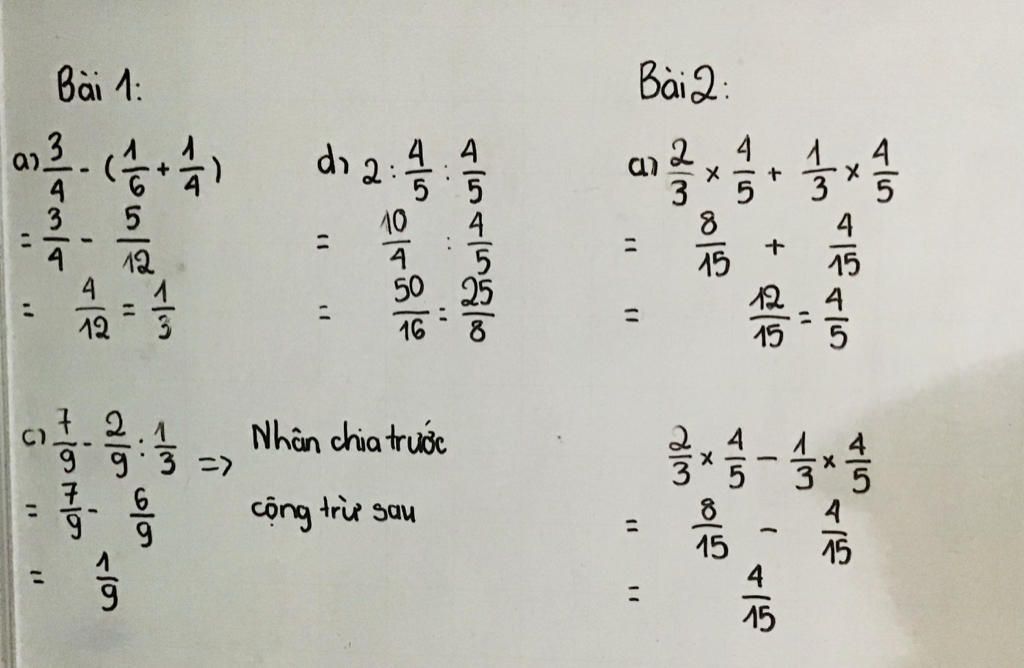 Bài 1:
a) 3/4 - (1/6 + 1/4)
= 3/4 - 5/12
= 4/12 = 1/3
d) 2 : 4/5 : 4/5
= 10/4 : 4/5
= 50/16 = 25/8
c) 7/9 - 2/9 : 1/3 => Nhân chia trước
= 7/9 - 6/9 cộng trừ sau
= 1/9
Bài 2:
a) 2/3 × 4/5 + 1/3 × 4/5
= 8/15 + 4/15
= 12/15 = 4/5
2/3 × 4/5 - 1/3 × 4/5
= 8/15 - 4/15
= 4/15